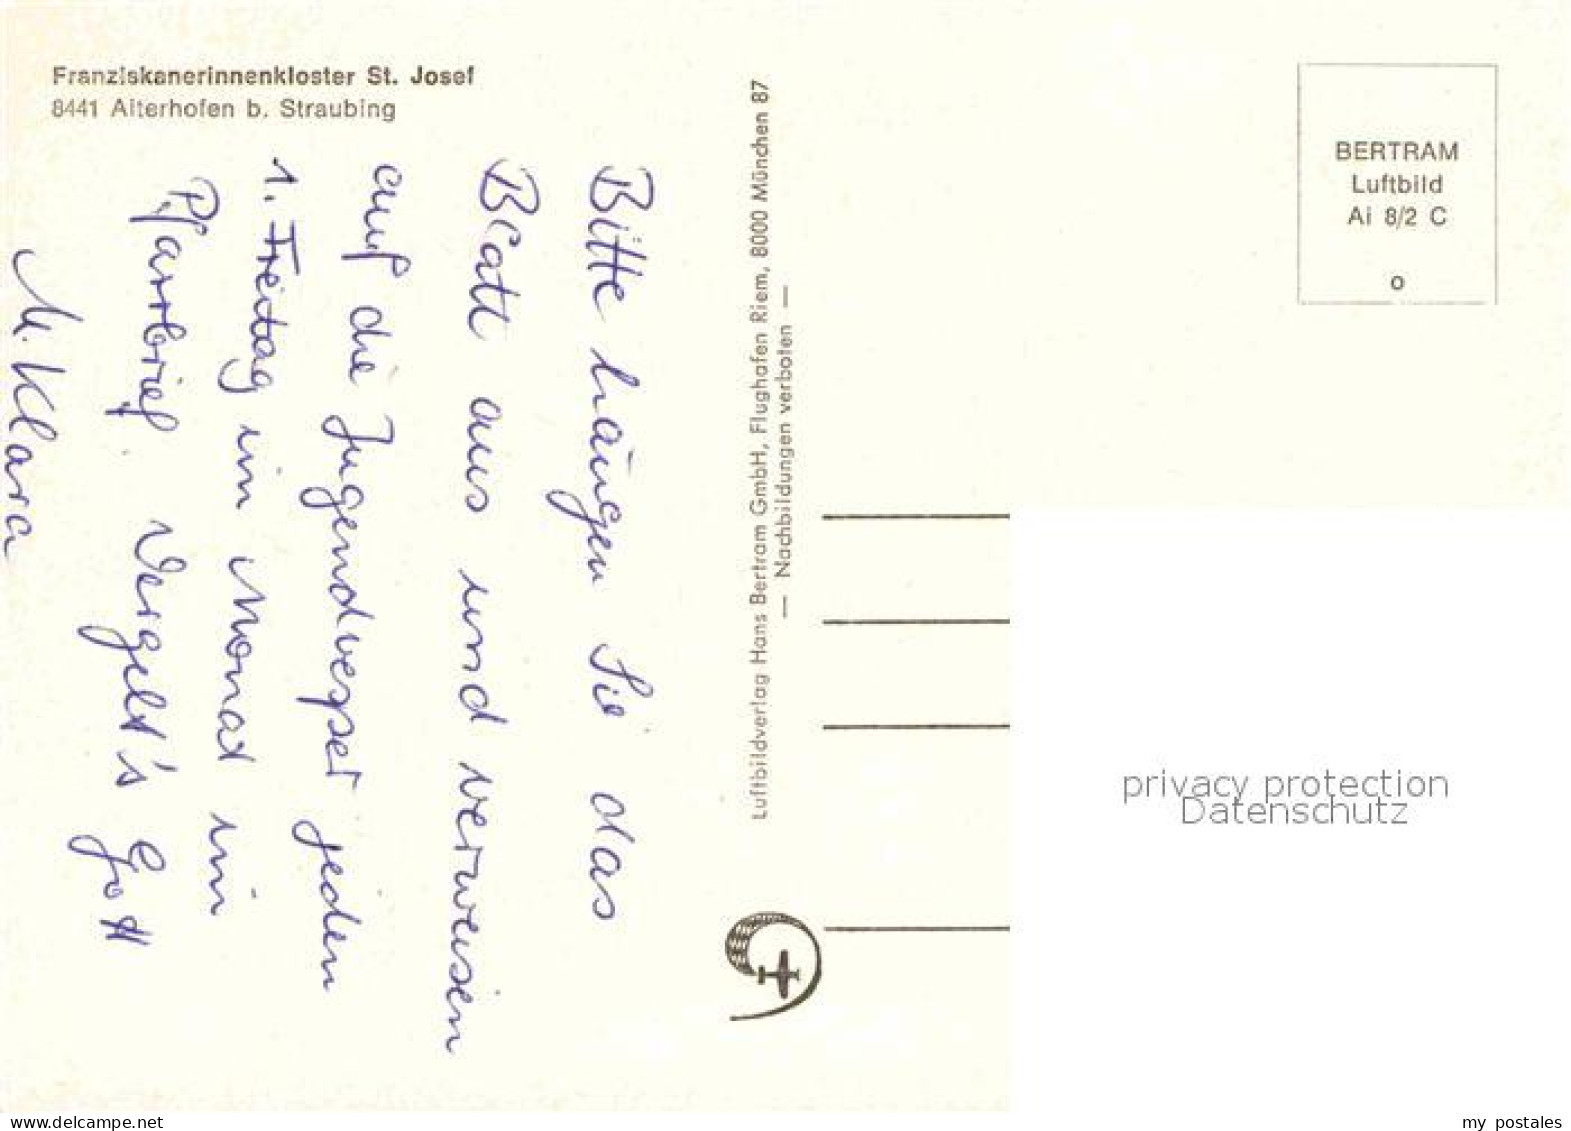 Franziskanerinnenkloster St. Josef
8441 Aiterhofen b. Straubing
Bitte hängen Sie das
Blatt aus und verweisen
auf die Jugendvesper jeden
1. Freitag im Monat im
Pfarrbrief. Vergelt's Gott
M. Klara
Luftbildverlag Hans Bertram GmbH, Flughafen Riem, 8000 München 87
— Nachbildungen verboten —
BERTRAM
Luftbild
Ai 8/2 C
o
privacy protection
Datenschutz
www.delcampe.net
my_postales